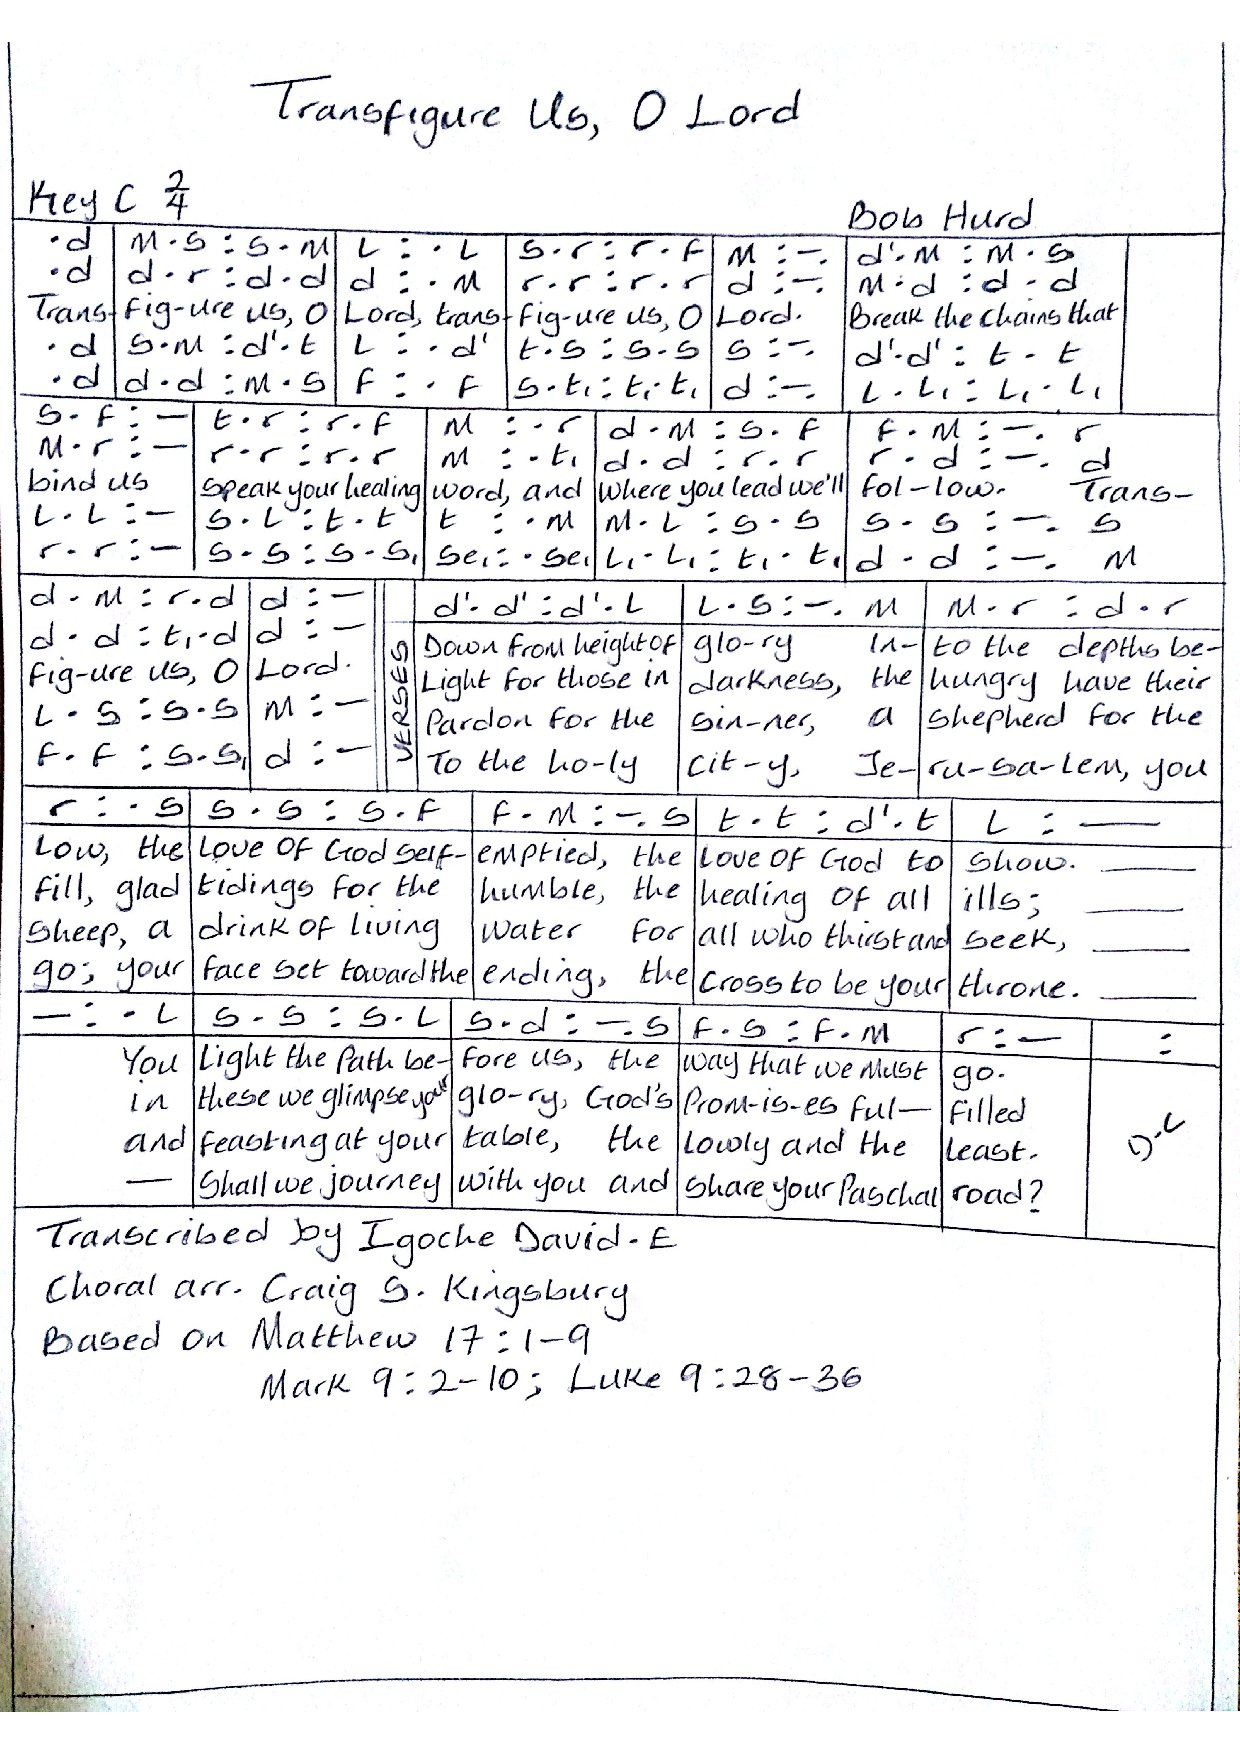 Transfigure Us, O Lord
Key C 2/4
Bob Hurd
.d | M.S : S.M | L : .L | S.r : r.f | M : -. | d'.M : M.S
.d | d.r : d.d | d : .M | r.r : r.r | d : -. | M.d : d.d
Trans- | fig-ure us, O | Lord, trans- | fig-ure us, O | Lord. | Break the chains that
.d | S.M : d'.t | L : .d' | t.S : S.S | S : -. | d'.d' : t.t
.d | d.d : M.S | F : .F | S.t₁ : t₁.t₁ | d : -. | L.L₁ : L₁.L₁
S.F : — | t.r : r.F | M : .r | d.M : S.F | F.M : -. r
M.r : — | r.r : r.r | M : .t₁ | d.d : r.r | r.d : -. d
bind us | speak your healing | word, and | where you lead we'll | fol-low. Trans-
L.L : — | S.L : t.t | t : .M | M.L : S.S | S.S : -. S
r.r : — | S.S : S.S₁ | Se₁ : .Se₁ | L₁.L₁ : t₁.t₁ | d.d : -. M
d.M : r.d | d : —
d.d : t₁.d | d : —
fig-ure us, O | Lord.
L.S : S.S | M : —
F.F : S.S₁ | d : —
VERSES
d'.d' : d'.L | L.S : -. M | M.r : d.r
Down from height of | glo-ry In- | to the depths be-
Light for those in | darkness, the | hungry have their
Pardon for the | sin-ner, a | shepherd for the
To the ho-ly | cit-y, Je- | ru-sa-lem, you
r : .S | S.S : S.F | F.M : -.S | t.t : d'.t | L : —
Low, the | Love of God self- | emptied, the | Love of God to | show. —
fill, glad | tidings for the | humble, the | healing of all | ills; —
sheep, a | drink of living | water for | all who thirst and | seek, —
go; your | face set toward the | ending, the | cross to be your | throne. —
— : .L | S.S : S.L | S.d : -.S | F.S : F.M | r : — | :
You | Light the Path be- | fore us, the | way that we must | go.
in | these we glimpse your | glo-ry, God's | Prom-is-es ful- | filled
and | feasting at your | table, the | Lowly and the | least.
— | Shall we journey | with you and | share your Paschal | road?
D.C
Transcribed by Igoche David.E
Choral arr. Craig S. Kingsbury
Based on Matthew 17:1-9
Mark 9:2-10; Luke 9:28-36